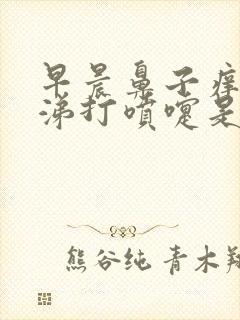 早晨鼻子痒
涕打喷嚏是
熊谷纯 青木翔